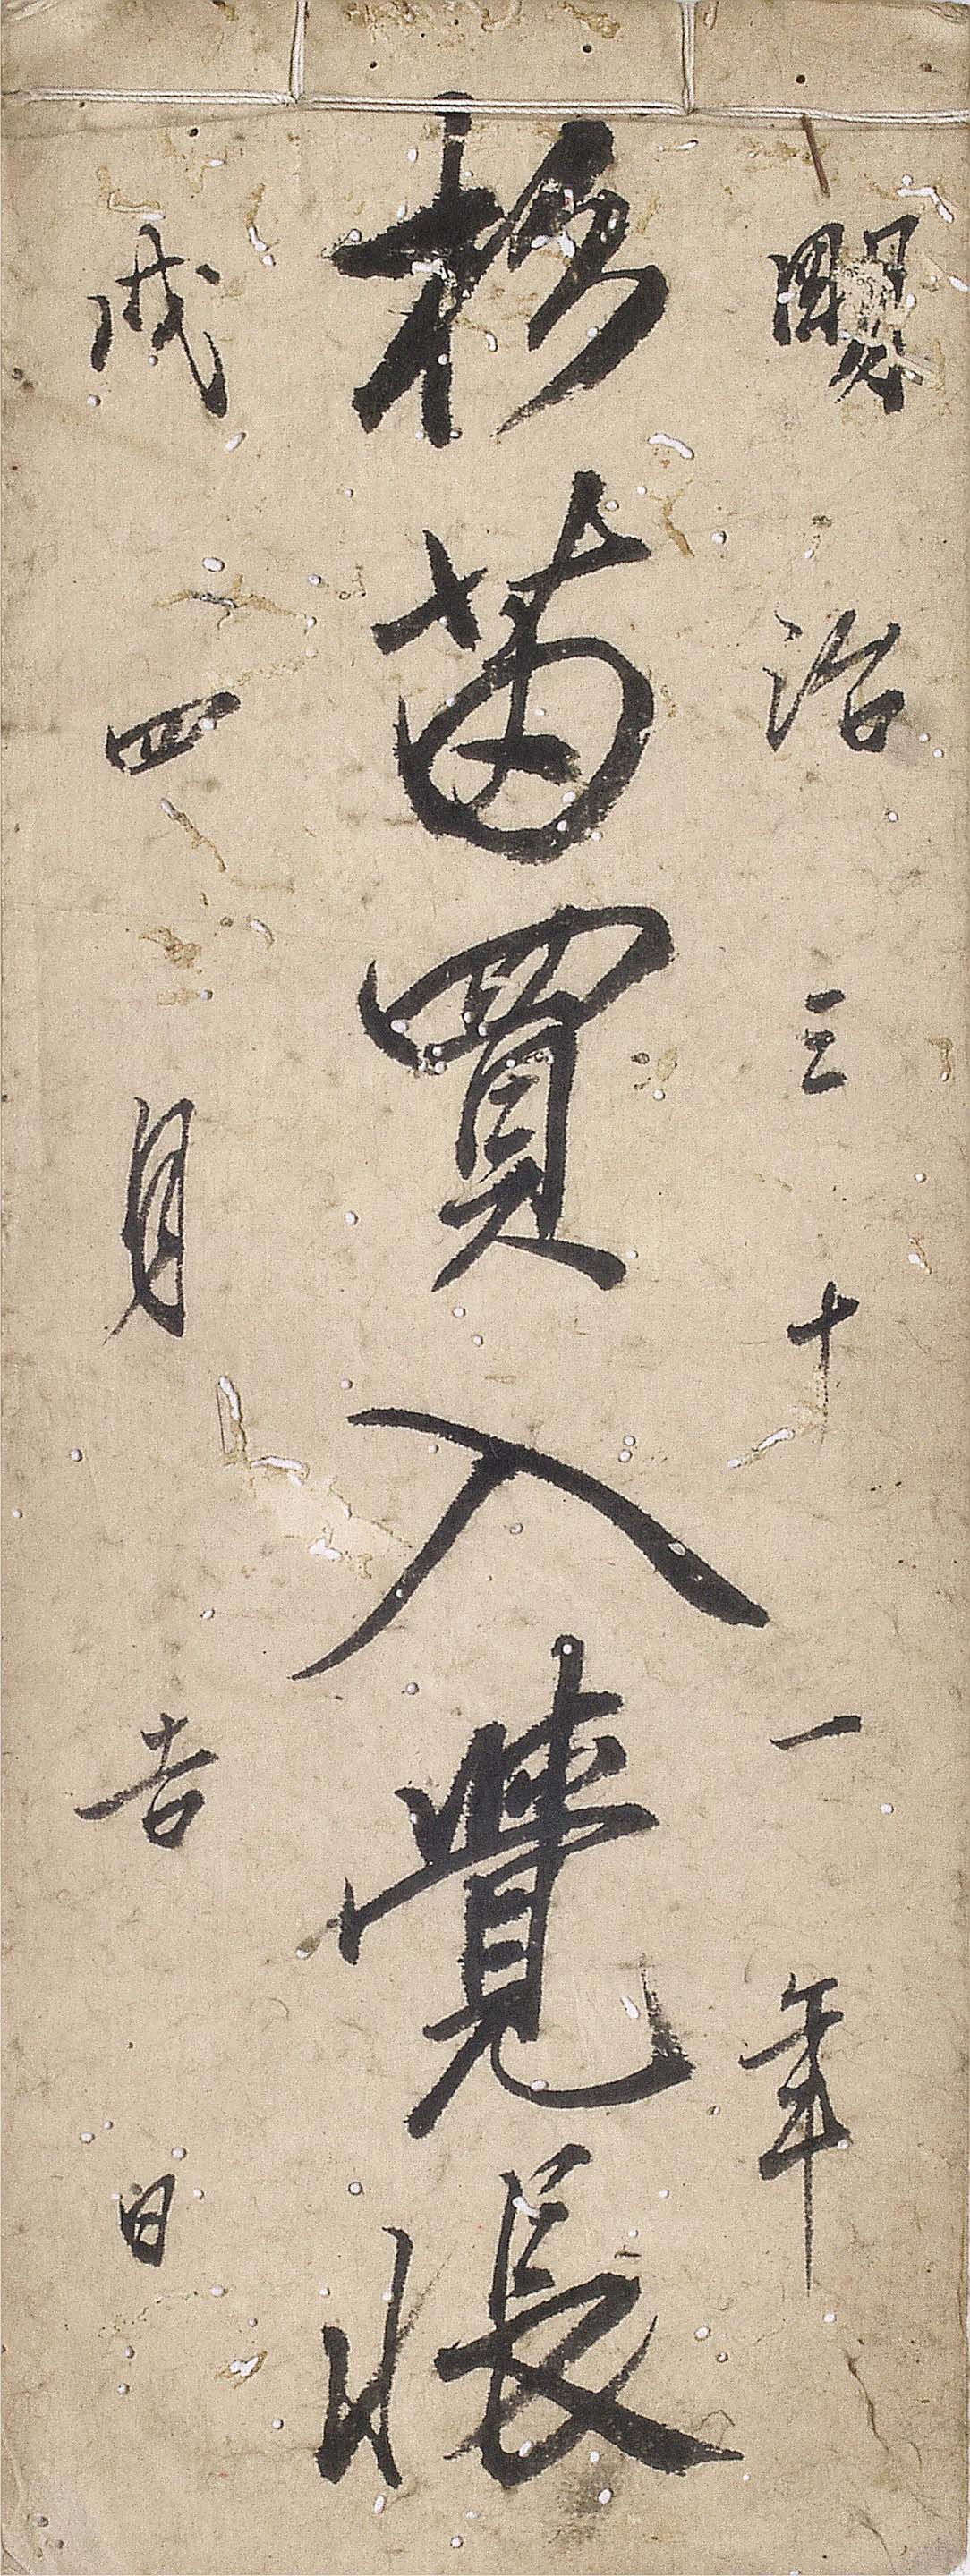 明治三十一年
杉苗買入覺帳
戌四月吉日